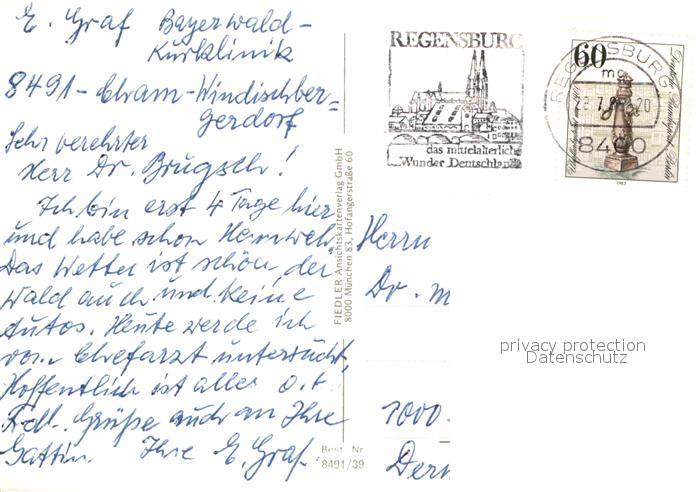 E. Graf Bayerwald-
Kurklinik
8491-Cham-Windischber=
gerdorf
Sehr verehrter
Herr Dr. Brugsch!
Ich bin erst 4 Tage hier
und habe schon Heimweh.
Das Wetter ist schön, der
Wald auch und keine
Autos. Heute werde ich
vom Chefarzt untersucht,
Hoffentlich ist alles o.k.
Frdl. Grüße auch an Ihre
Gattin. Ihre E. Graf.
FIEDLER Ansichtskartenverlag GmbH
8000 München 83, Hofangerstraße 60
Best. Nr.
8491/39
REGENSBURG
das mittelalterliche
Wunder Deutschlands
REGENSBURG
mg
8400
60
Deutsche Bundespost Berlin
1983
Herrn
Dr. m
1000
Dern
privacy protection
Datenschutz